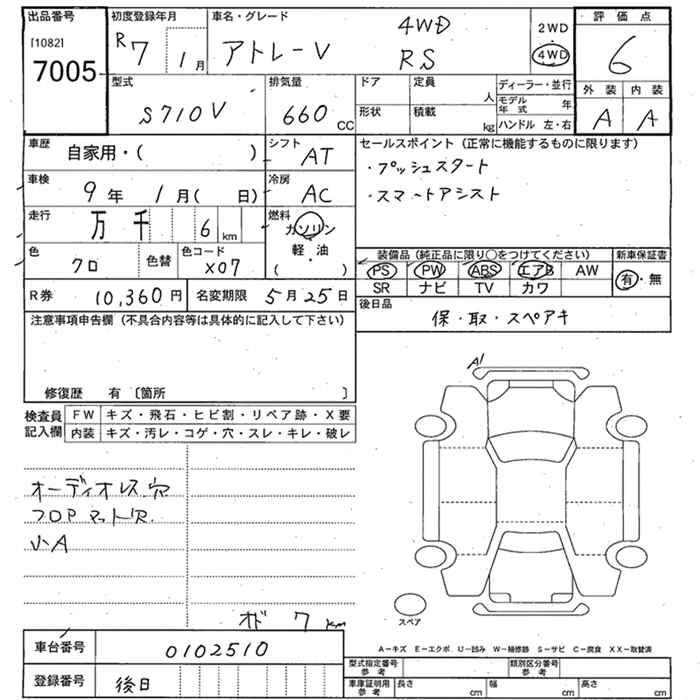 出品番号 初度登録年月 車名・グレード 4WD 2WD 評価点
[1082] R7 1月 アトレーV RS 4WD 6
7005
型式 排気量 ドア 定員 人 ディーラー・並行 外装 内装
S710V 660 CC 形状 積載 kg モデル年式 年 A A
ハンドル 左・右
車歴 自家用・( ) シフト AT セールスポイント (正常に機能するものに限ります)
・プッシュスタート
車検 9年 1月( 日) 冷房 AC ・スマートアシスト
走行 万 千 6 km 燃料 ガソリン
軽・油
( )
色 クロ 色替 色コード X07
装備品 (純正品に限り○をつけてください) 新車保証書
PS PW ABS エアB AW 有・無
SR ナビ TV カワ
R券 10,360円 名変期限 5月25日 後日品
保・取・スペアキ
注意事項申告欄 (不具合内容等は具体的に記入して下さい)
修復歴 有 〔箇所 〕
A1
検査員記入欄 FW キズ・飛石・ヒビ割・リペア跡・X要
内装 キズ・汚レ・コゲ・穴・スレ・キレ・破レ
オーディオレス穴
フロアマット欠
小A
オド 7 km
スペア
A-キズ E-エクボ U-凹み W-補修跡 S-サビ C-腐食 XX-取替済
車台番号 0102510
登録番号 後日
型式指定番号 参考 類別区分番号 参考
車庫証明用 参考 長さ cm 幅 cm 高さ cm